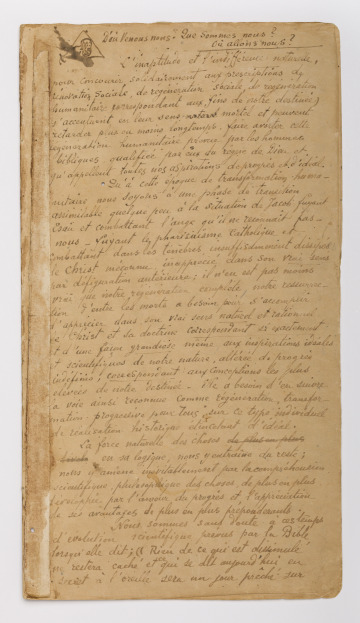 D'où venons nous? Que sommes nous?
Où allons nous?
L'inaptitude et l'indifférence notoires,
pour concourir solidairement aux prescriptions de
rénovation sociale, de régénération sociale, de régénération
humanitaire correspondant aux fins de notre destinée,
s'accentuant en leur sens mortel et pouvant
retarder plus ou moins longtemps, faire avorter cette
régénération humanitaire prévue par les hommes
bibliques qualifiée par eux du règne de Dieu et
qu'appellent toutes nos aspirations de progrès et d'idéal.
Dû à cette époque de transformation huma-
nitaire nous soyons à une phase de transition
assimilable quelque peu à la situation de Jacob fuyant
Esaü et combattant l'ange qu'il ne reconnaît pas —
nous — fuyant le pharisaïsme catholique et
combattant dans les ténèbres insuffisamment dissipées
le Christ méconnu, inapprécié dans son vrai sens
par défiguration antérieure; il n'en est pas moins
vrai que notre régénération complète, notre résurrec-
tion d'entre les morts a besoin pour s'accomplir
d'apprécier dans son vrai sens naturel et rationnel
le Christ et sa doctrine correspondant si exactement
et d'une façon grandiose même aux inspirations
et scientifiques de notre nature, altérée de progrès
indéfinis; correspondant aux conceptions les plus
élevées de notre destinée. Elle a besoin d'en suivre
la voie ainsi reconnue comme régénération, transfor-
mation progressive pour tous, sur ce type individuel
de réalisation historique élémentaire d'idéal;
La force naturelle des choses de plus en plus
en sa logique, nous y entraîne du reste;
nous y amène inévitablement par la compréhension
scientifique, philosophique des choses de plus en plus
développée, par l'amour du progrès et l'appréciation
de ses avantages de plus en plus prépondérante.
Nous sommes sans doute à ces temps
d'évolution scientifique prévus par la Bible
lorsqu'elle dit; Rien de ce qui est dissimulé
ne restera caché et qui se dit aujourd'hui en
secret à l'oreille sera un jour prêché sur